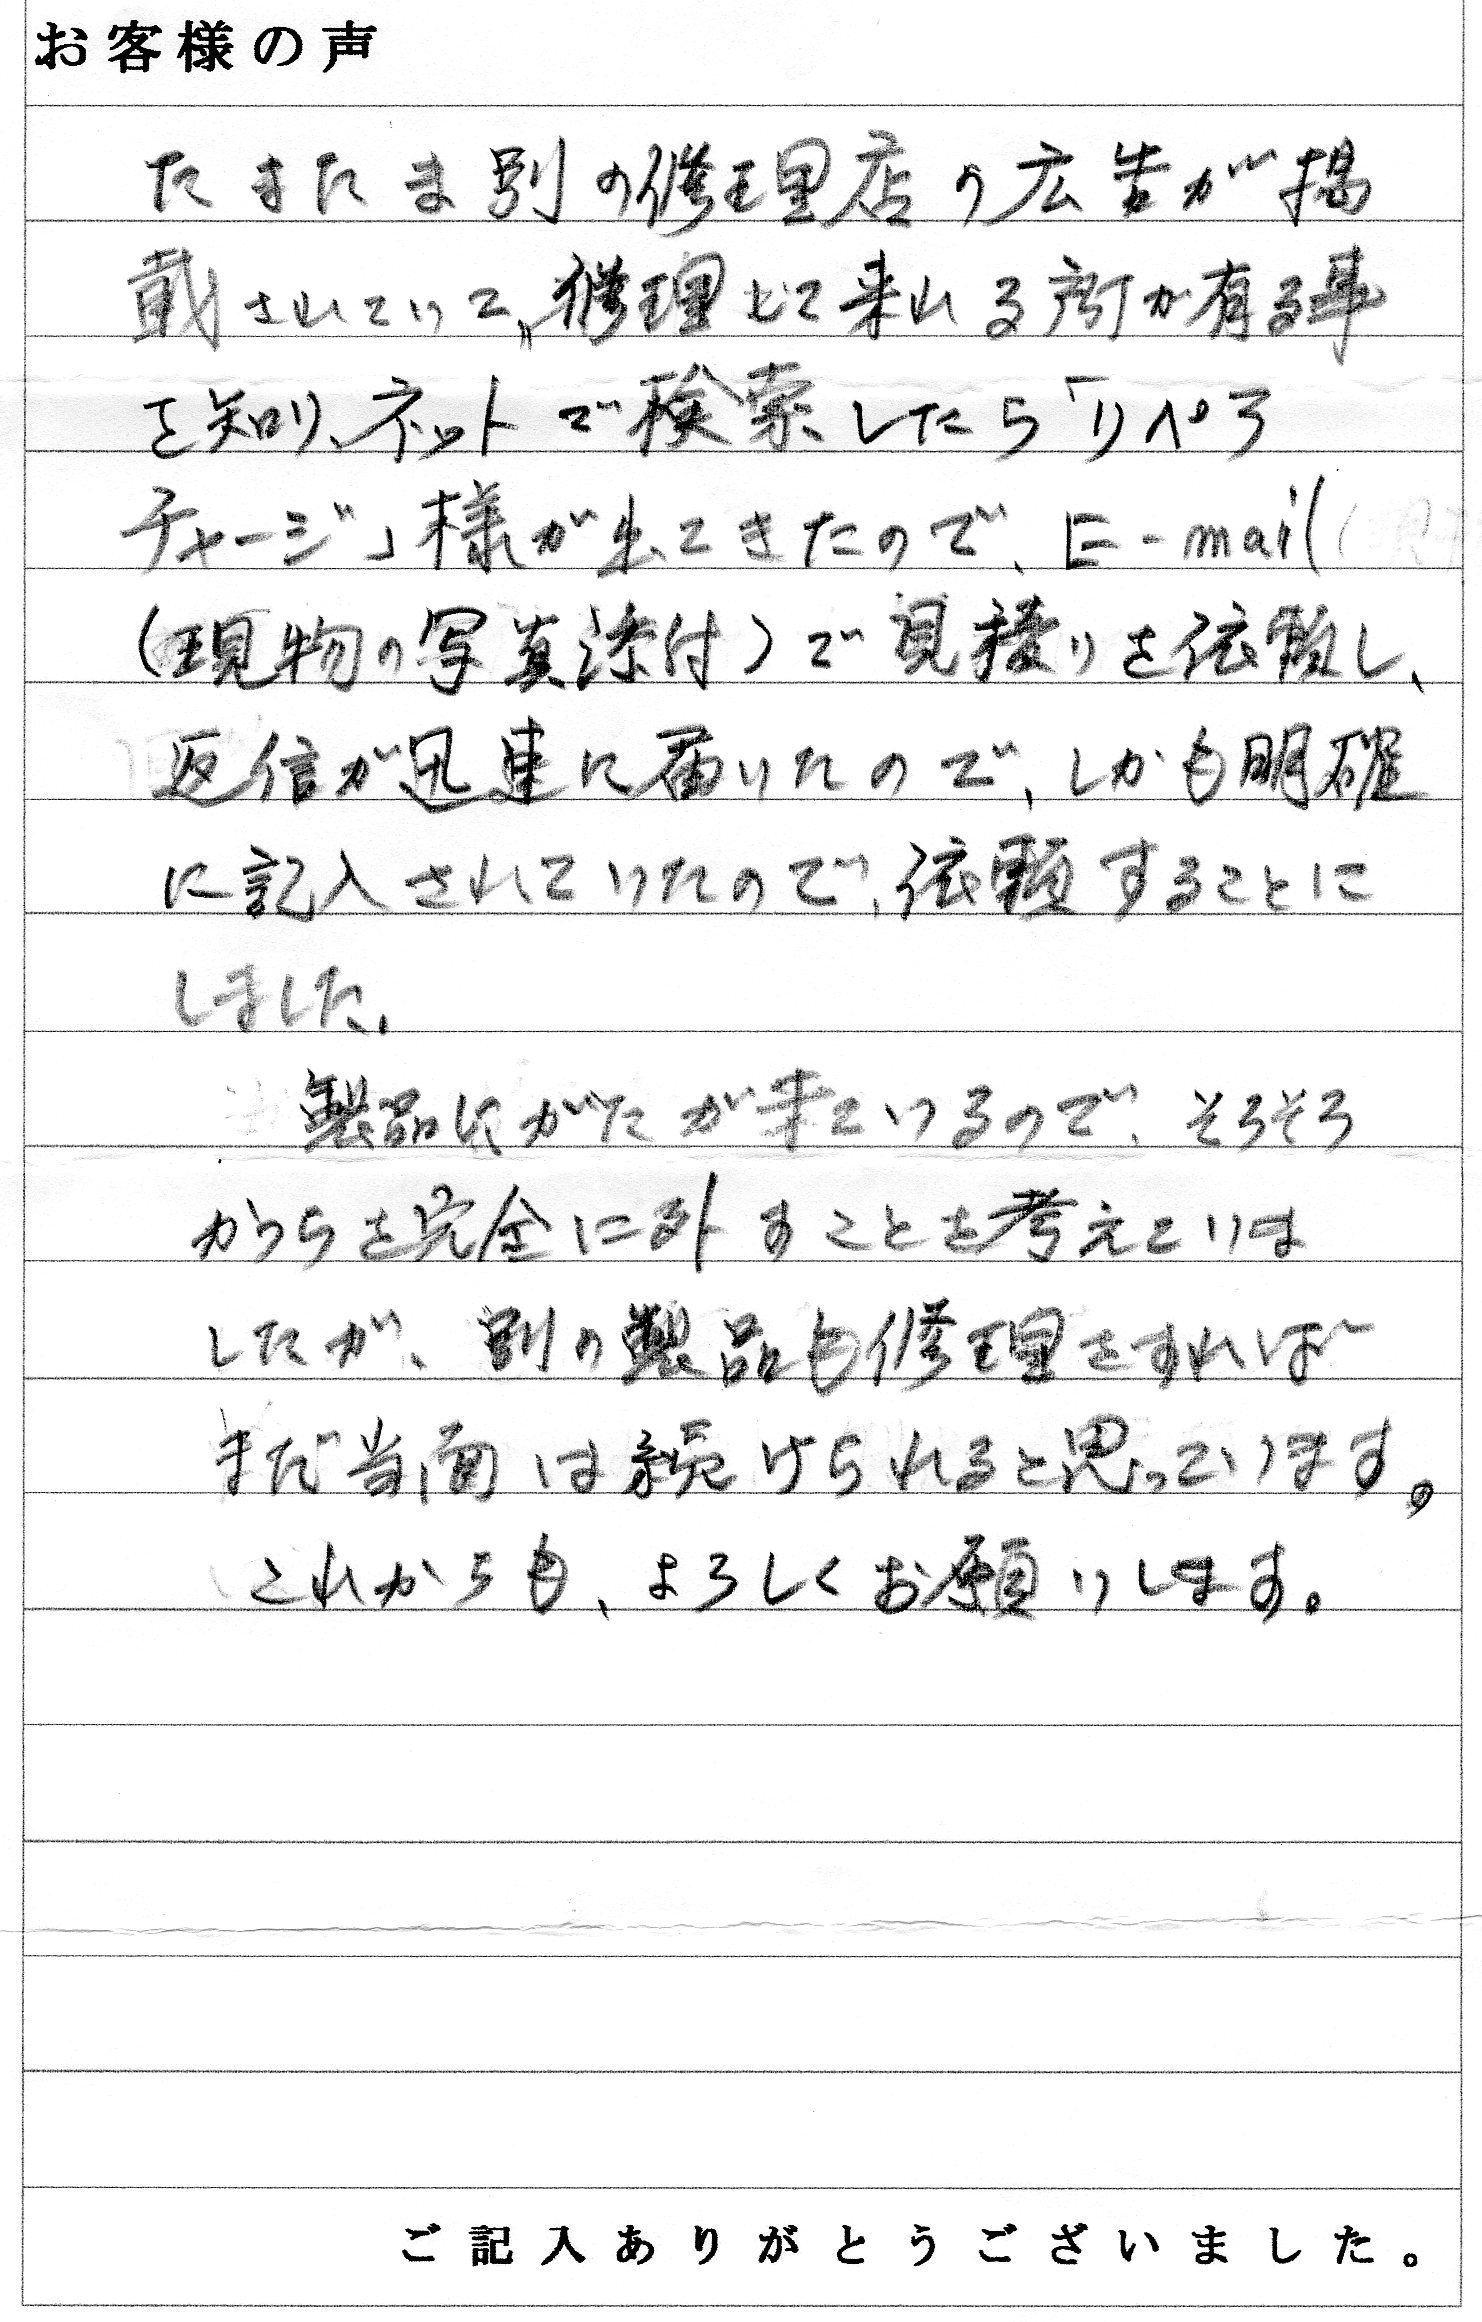 お客様の声
たまたま別の修理店の広告が掲
載されていて、修理して来れる所が有る事
を知り、ネットで検索したら「リペア
チャージ」様が出てきたので、E-mail
(現物の写真添付)で見積りを依頼し、
返信が迅速に届いたので、しかも明確
に記入されていたので、依頼することに
しました。
製品にがたが来ているので、そろそろ
からを完全に外すことを考えていま
したが、別の製品も修理をすれば
まだ当面は続けられると思っています。
これからも、よろしくお願いします。
ご記入ありがとうございました。